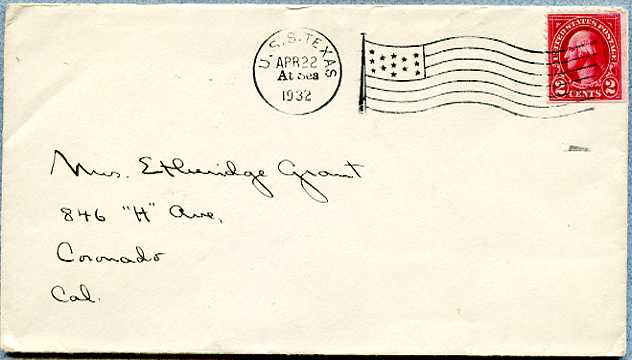 U.S.S. TEXAS
APR 22
At Sea
1932
UNITED STATES POSTAGE
2 CENTS 2
Mrs. Etheridge Grant
846 "H" Ave,
Coronado
Cal.